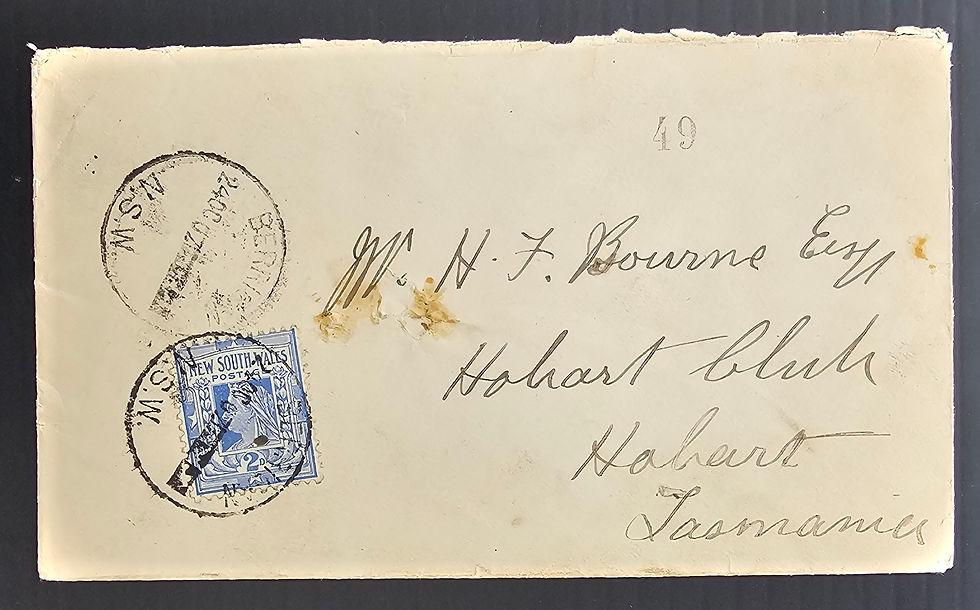 49
N.S.W
24 OC 07
Mr. H. F. Bourne Esq
Hobart Club
Hobart
Tasmania
NEW SOUTH WALES
POSTAGE
2D
N.S.W